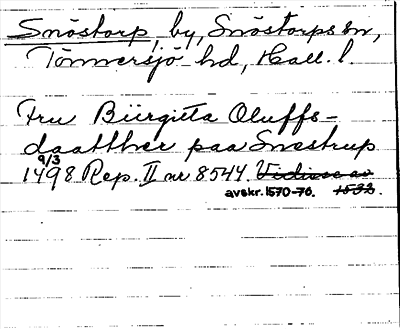 Snöstorp, by, Snöstorps sn,
Tönnersjö hd, Hall. l.
Fru Biirgitta Oluffs-
daatther paa Snøstrup
9/3
1498 Rep. II nr 8544. Vidisse av
avskr. 1570-76. 1533.